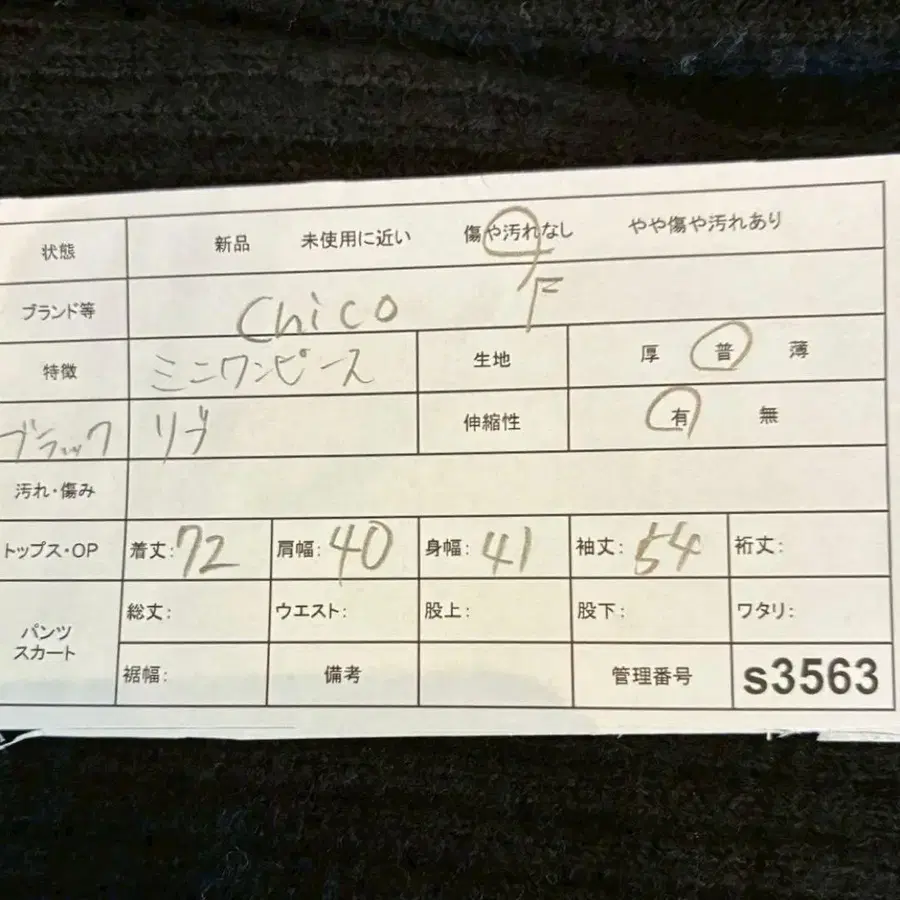 状態 新品 未使用に近い 傷や汚れなし やや傷や汚れあり
ブランド等 Chico F
特徴 ミニワンピース 生地 厚 普 薄
ブラック リブ 伸縮性 有 無
汚れ・傷み
トップス・OP 着丈:72 肩幅:40 身幅:41 袖丈:54 裄丈:
パンツ スカート 総丈: ウエスト: 股上: 股下: ワタリ:
裾幅: 備考 管理番号 s3563